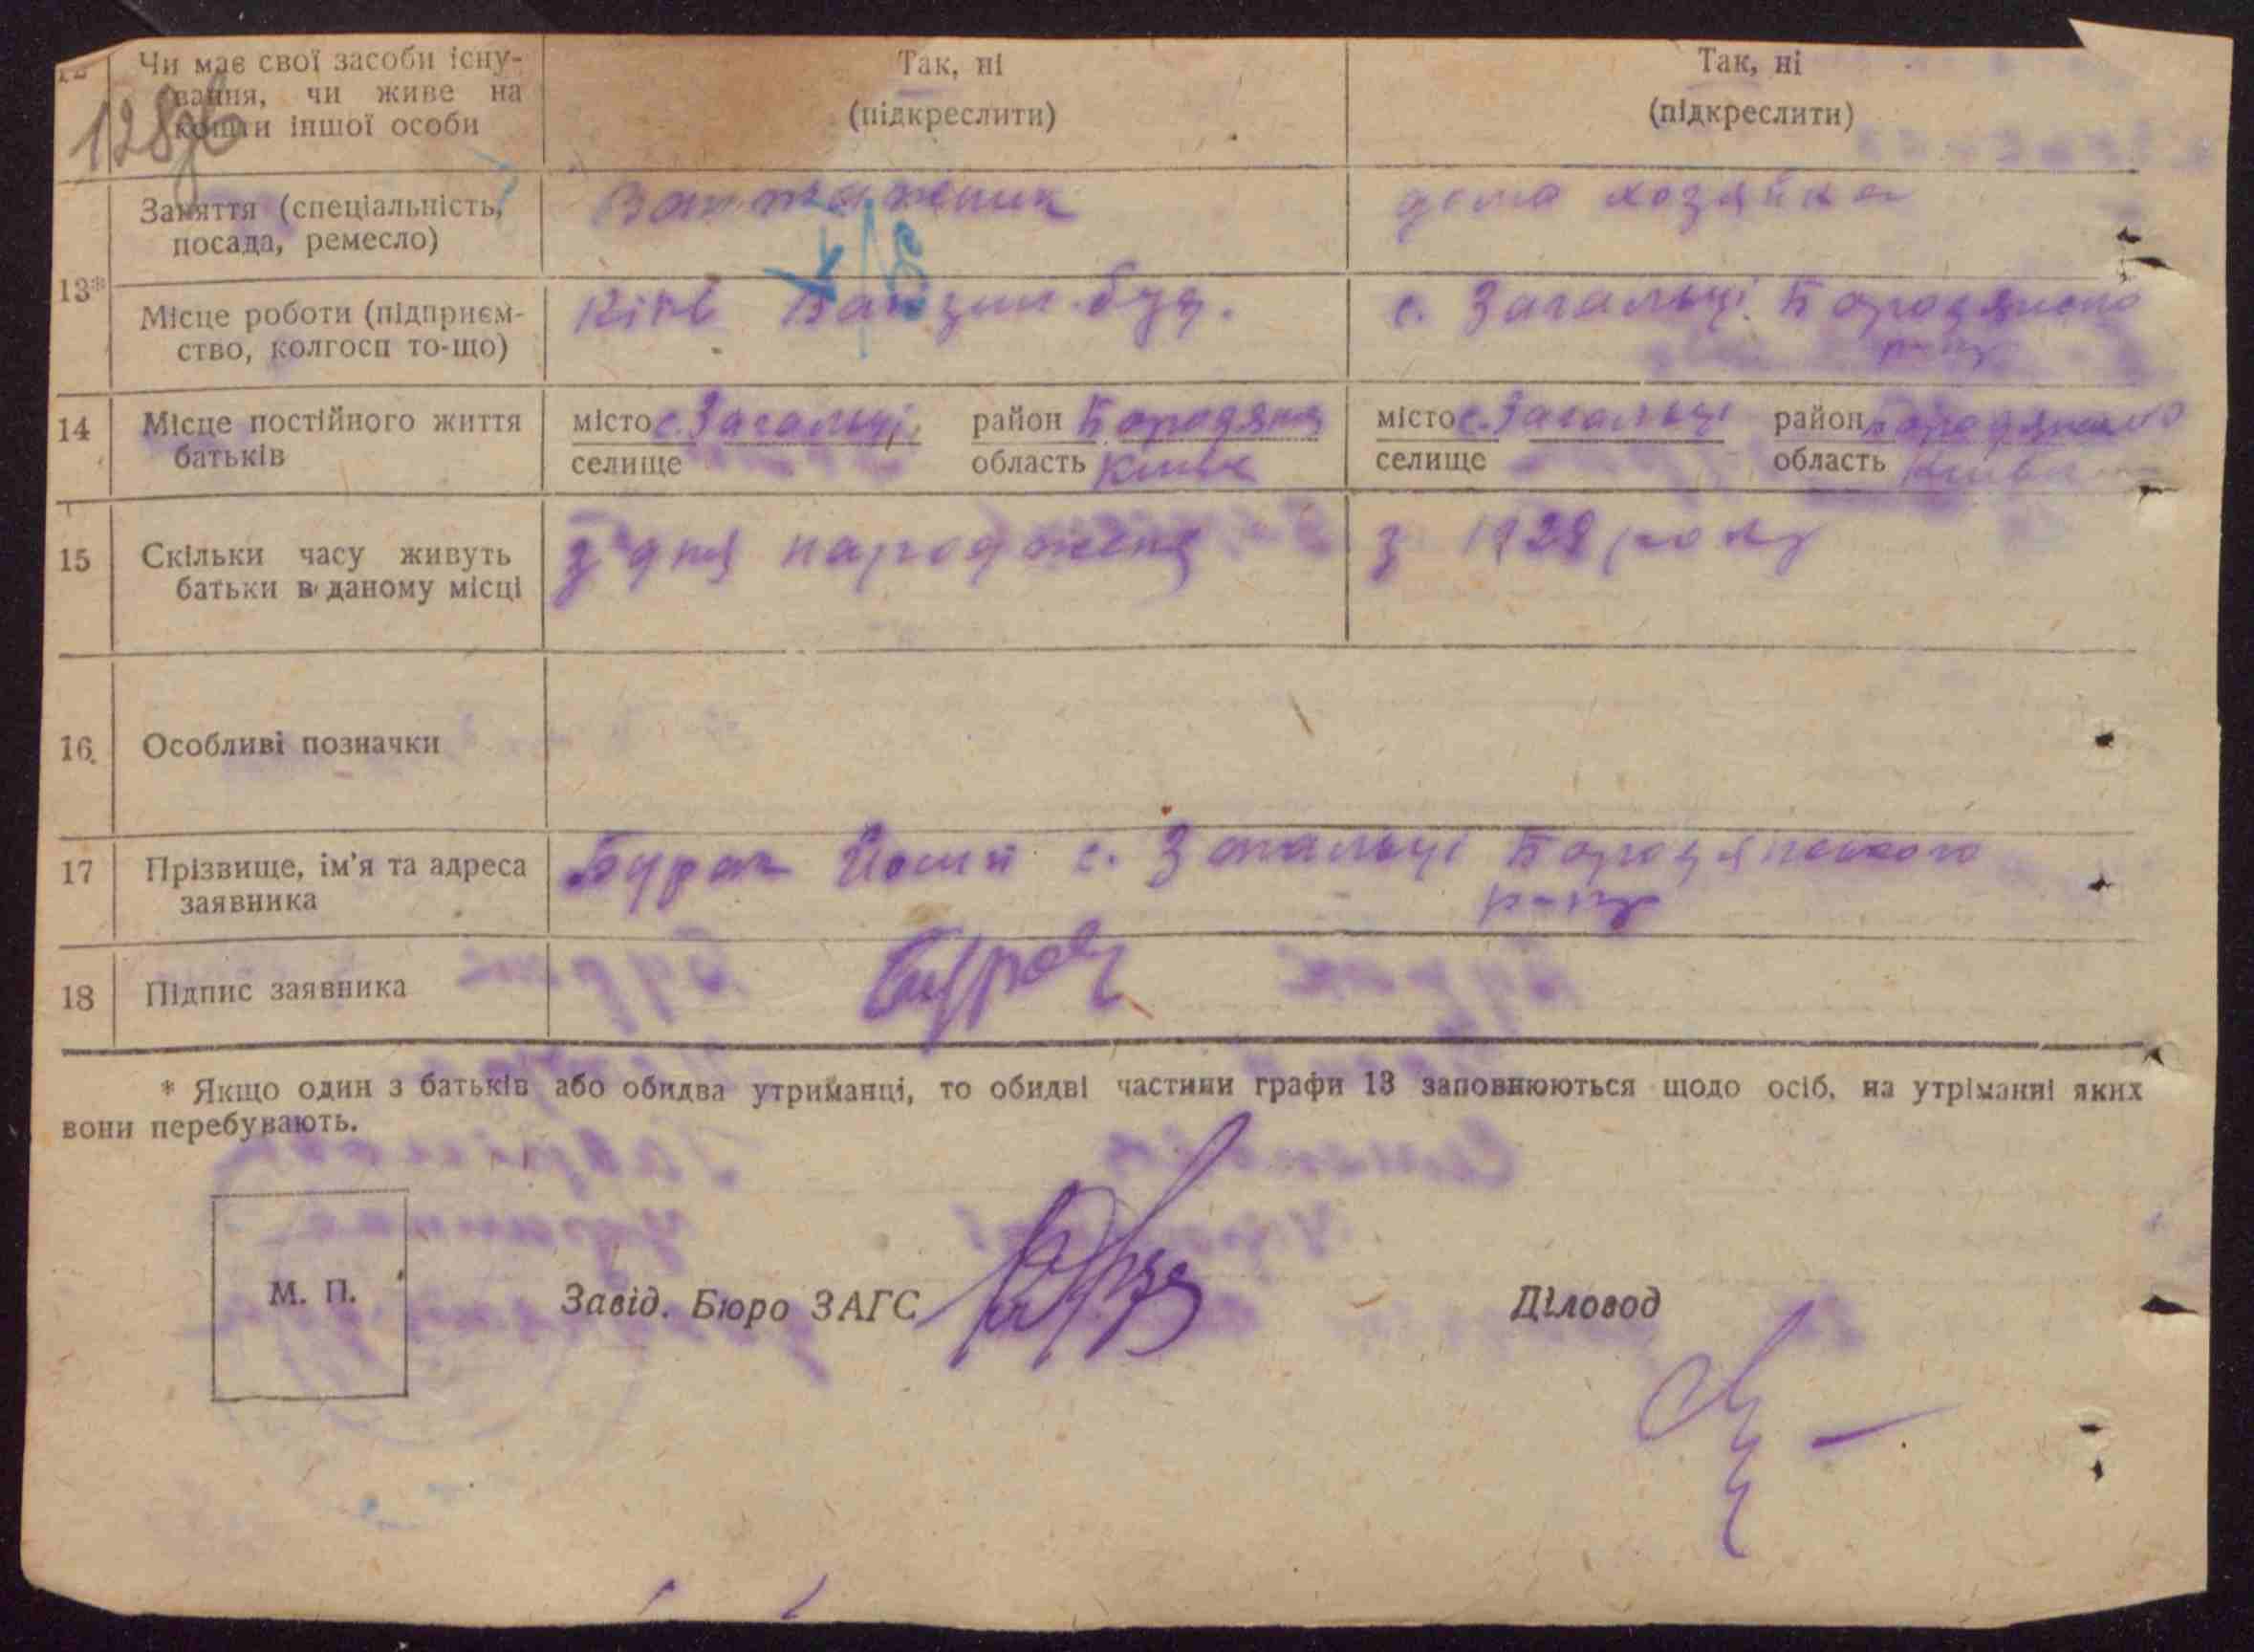 12 Чи має свої засоби існу- Так, ні Так, ні
вання, чи живе на (підкреслити) (підкреслити)
кошти іншої особи
128
Заняття (спеціальність, Вантажник дома хозяйка
посада, ремесло)
13*
Місце роботи (підприєм- Київ буд. с. Загальці Бородянського
ство, колгосп то-що) р-ну
14 Місце постійного життя місто с. Загальці район Бородянка місто с. Загальці район Бородянського
батьків селище область Київ селище область Київ
15 Скільки часу живуть з дня народження з 1929 року
батьки в даному місці
16 Особливі позначки
17 Прізвище, ім'я та адреса Бурак с. Загальці Бородянського
заявника р-ну
18 Підпис заявника Бурак
* Якщо один з батьків або обидва утриманці, то обидві частини графи 13 заповнюються щодо осіб, на утріманні яких
вони перебувають.
М. П. Завід. Бюро ЗАГС Діловод